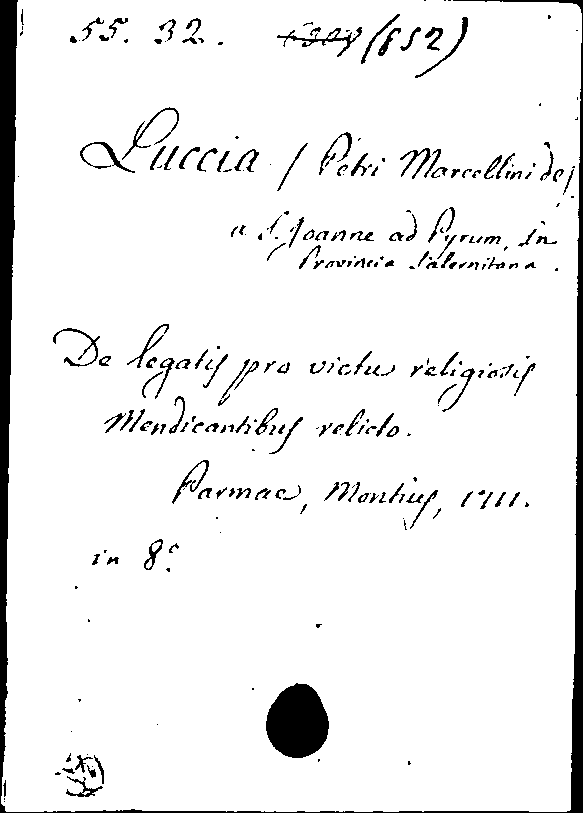 55. 32. (852)
Luccia / Petri Marcellini de /
a S. Joanne ad Pyrum, in
Provincia Salernitana.
De legatis pro victu religiosis
Mendicantibus relicto.
Parmae, Montius, 1711.
in 8º